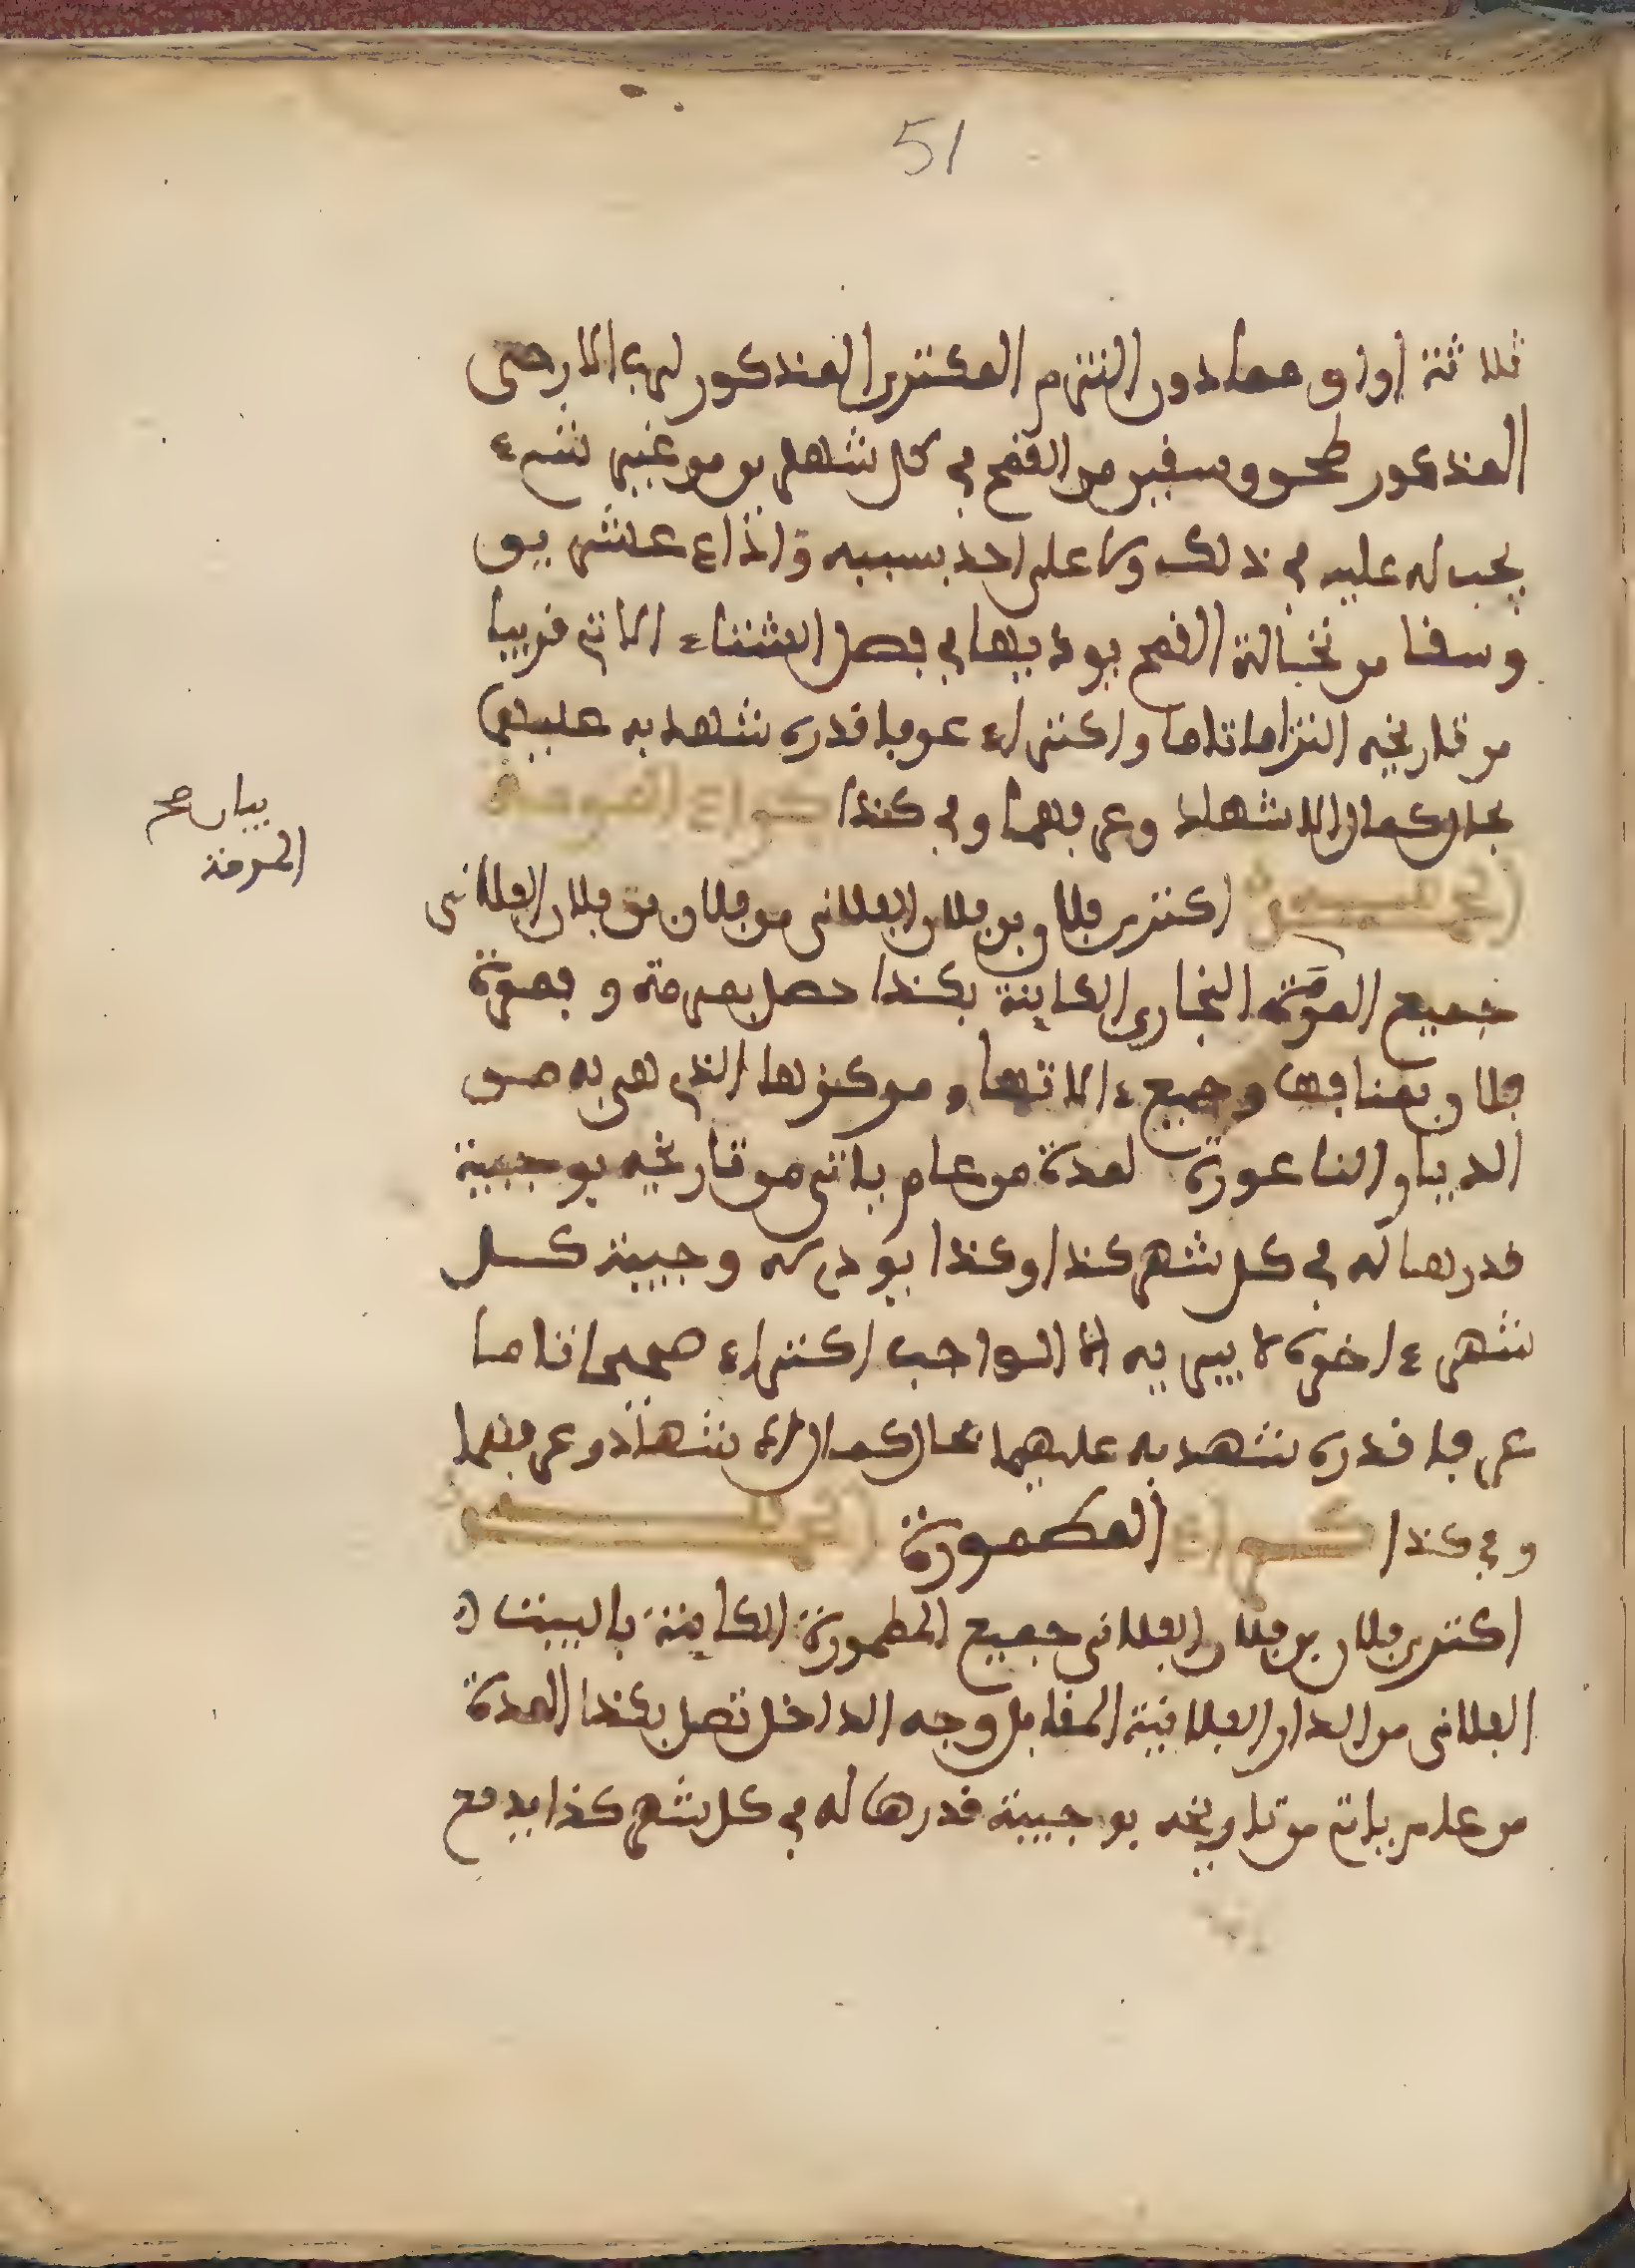 51
ثلاثة اواق فما دون التزم المكتري المذكور لرب الارحى
المذكور طحن وسقين من القمح في كل شهر من من غير شيء
يجب له عليه في ذلك ولا على احد بسببه واداء عشرين
وسقا من نخالة القمح يوديها في فصل الشتاء الاتي قريبا
من تاريخه التزاما تاما واكتراء عرفا قدره شهد به عليهما
بحال كمال الاشهاد وعرفهما وفي كذا كراء الفرمة
الحمد لله اكترى فلان بن فلان الفلاني من فلان بن فلان الفلاني
جميع الفرمة النجاري الكاينة بكذا حصل بفرمة وبفرة
فلان بمنافعها وجميع ءالاتها ومركزها الذي هي به من
الديار الناعورة لمدة من عام ياتي من تاريخه بوجيبة
قدرها له في كل شهر كذا وكذا يودي له وجيبة كل
شهر ءاخره لا يبريه الا الواجب اكتراء صحيحا تاما
عرفا قدره شهد به عليهما بحال كمال الاشهاد وعرفهما
وفي كذا كراء المطمورة الحمد لله
اكترى فلان بن فلان الفلاني جميع المطمورة الكاينة بالبيت
الفلاني من الدار الفلانية المقابل وجه الداخل تصل بكذا المدة
من عام ياتي من تاريخه بوجيبة قدرها له في كل شهر كذا يدفع
بيان صح